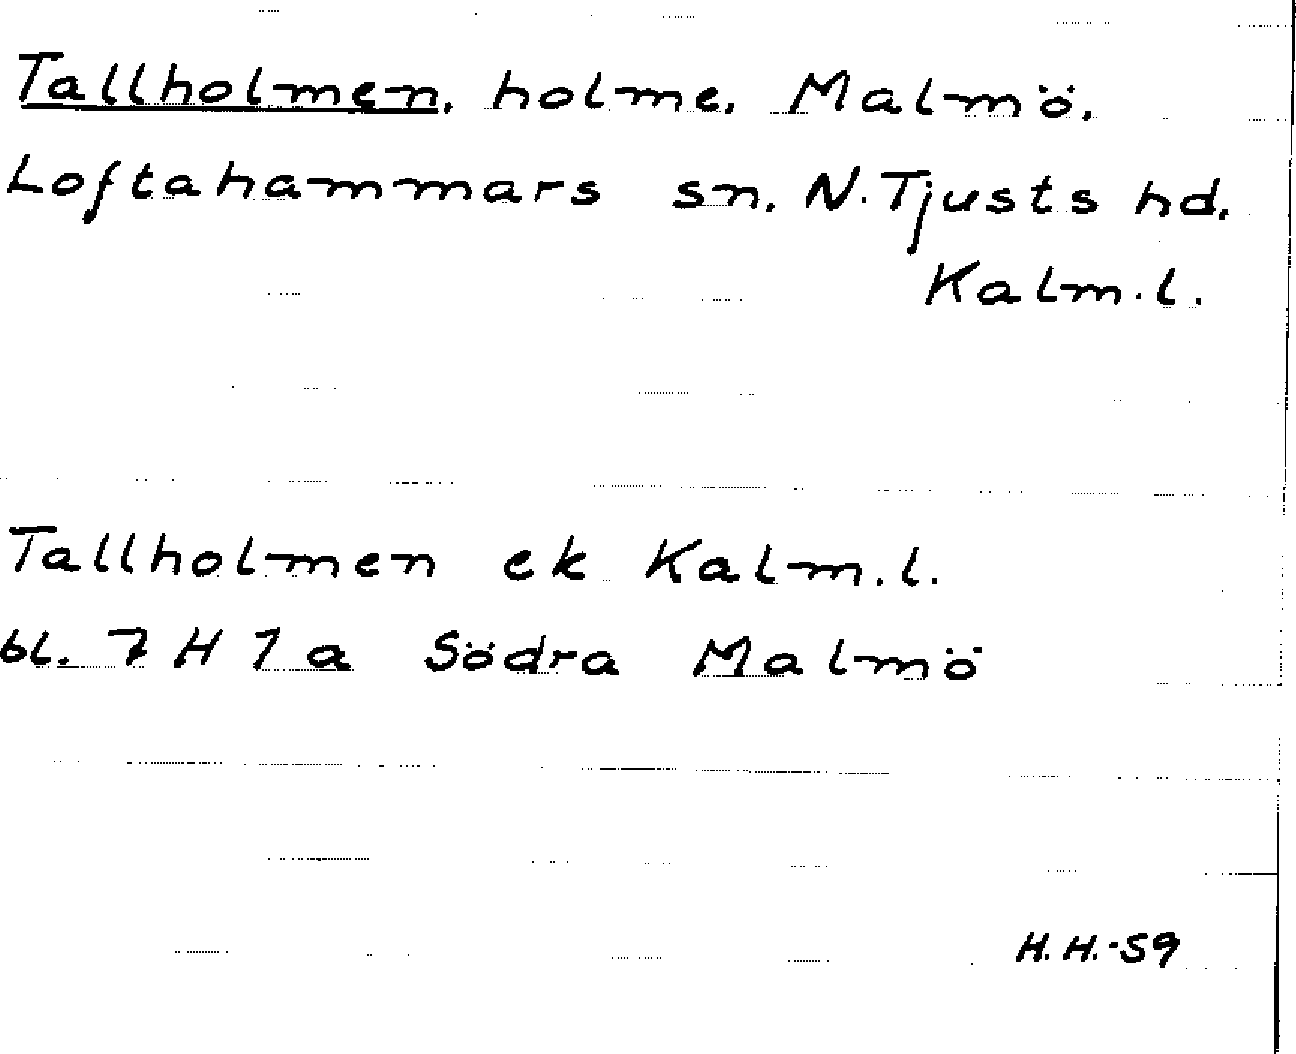 Tallholmen. holme. Malmö.
Loftahammars sn. N.Tjusts hd.
Kalm.l.
Tallholmen ek Kalm.l.
bl. 7 H 7 a Södra Malmö
H.H.-59